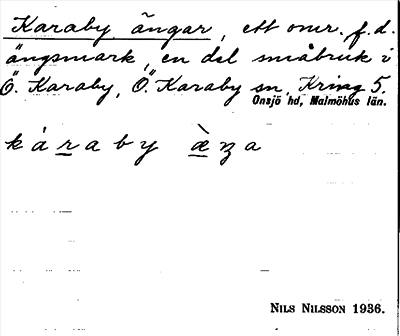 Karaby ängar, ett omr. f.d.
ängsmark, en del småbruk i
Ö. Karaby, Ö. Karaby sn, Kring 5.
Onsjö hd, Malmöhus län.
káraby
NILS NILSSON 1936.